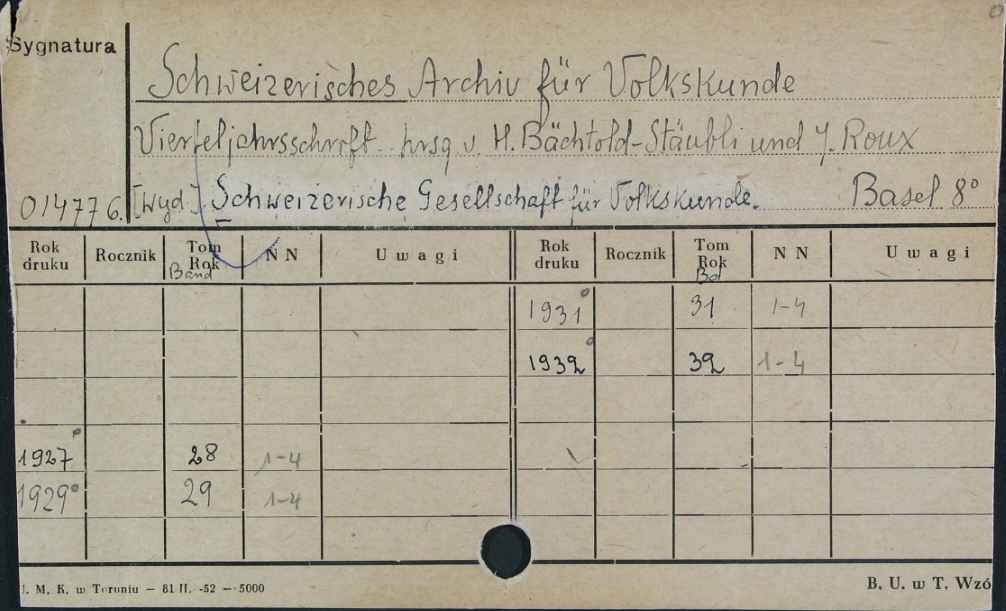 Sygnatura
Schweizerisches Archiv für Volkskunde
Vierteljahrsschrift hrsg v. H. Bächtold-Stäubli und J. Roux
014776. [Wyd.] Schweizerische Gesellschaft für Volkskunde. Basel 8°
Rok druku Rocznik Tom Rok Band NN Uwagi Rok druku Rocznik Tom Rok Bd NN Uwagi
1931 31 1-4
1932 32 1-4
1927 28 1-4
1929 29 1-4
U. M. K. w Toruniu — 81 II. -52 — 5000 B. U. w T. Wzó